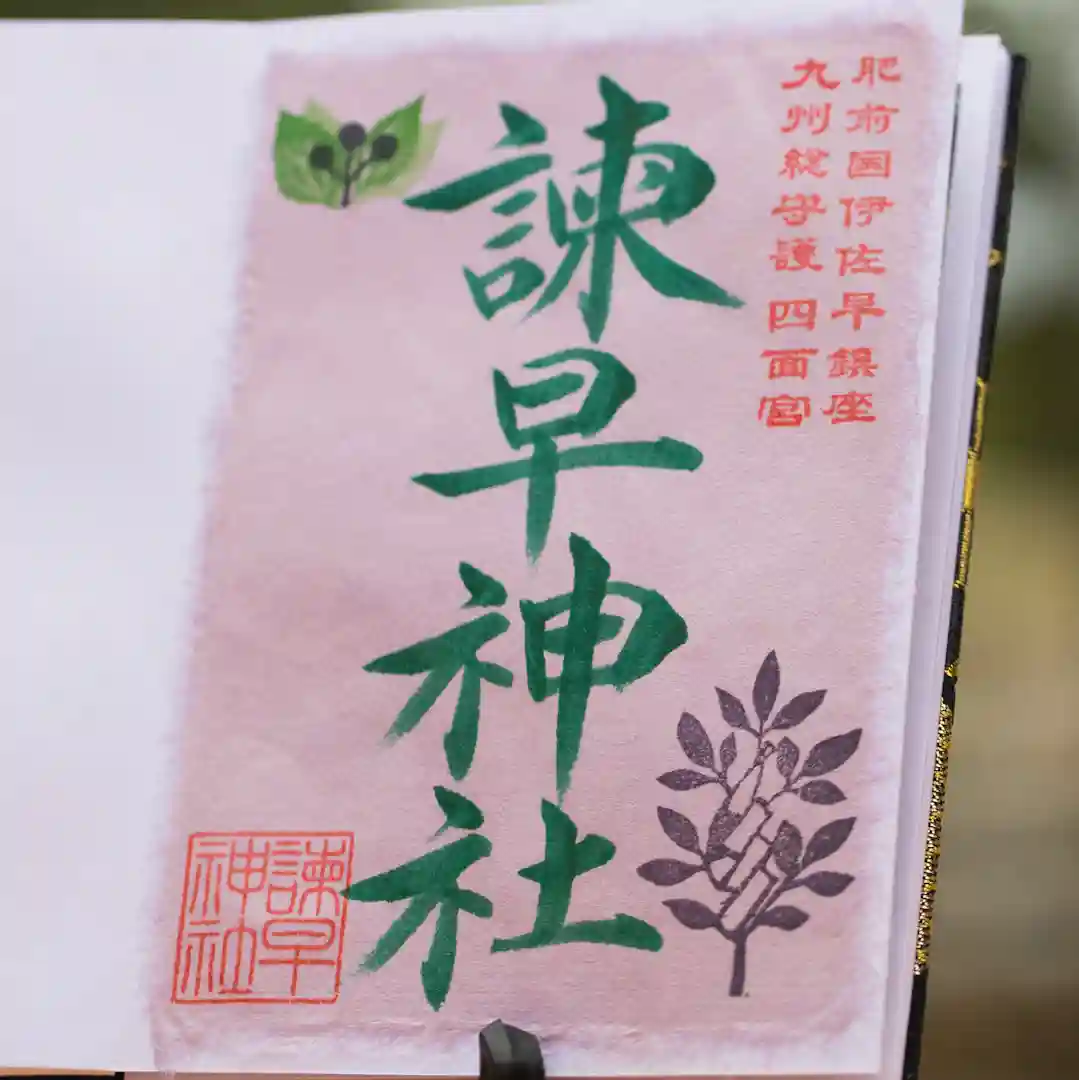 肥前国伊佐早鎮座
九州総守護四面宮
諫早神社
諫早
神社